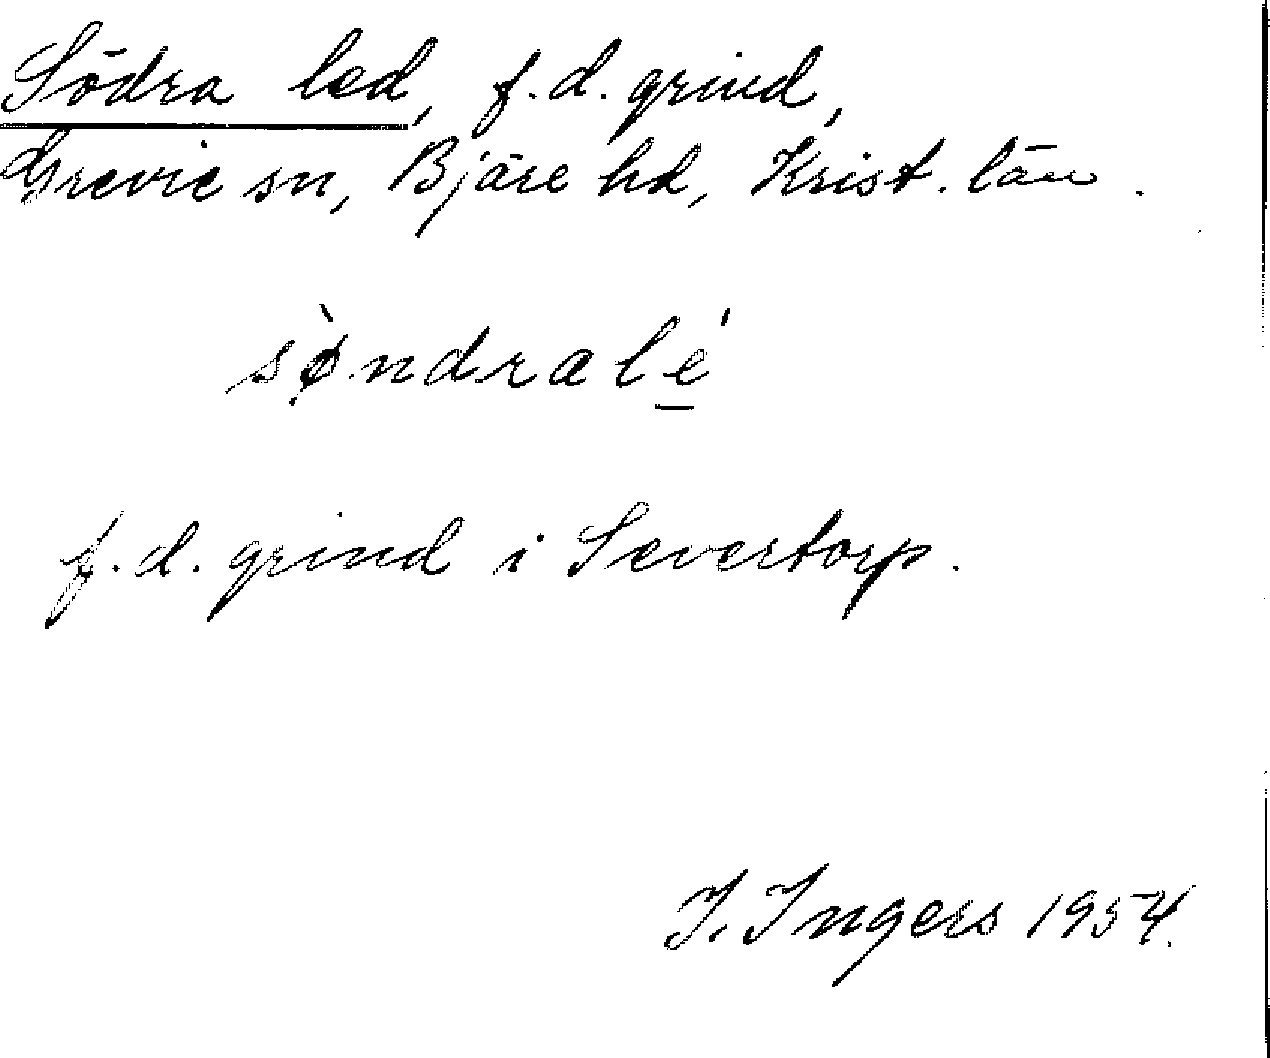 Södra led, f.d. grind,
Grevie sn, Bjäre hd, Krist. län.
sø̀ndralé̲
f.d. grind i Severtorp.
I. Ingers 1954.